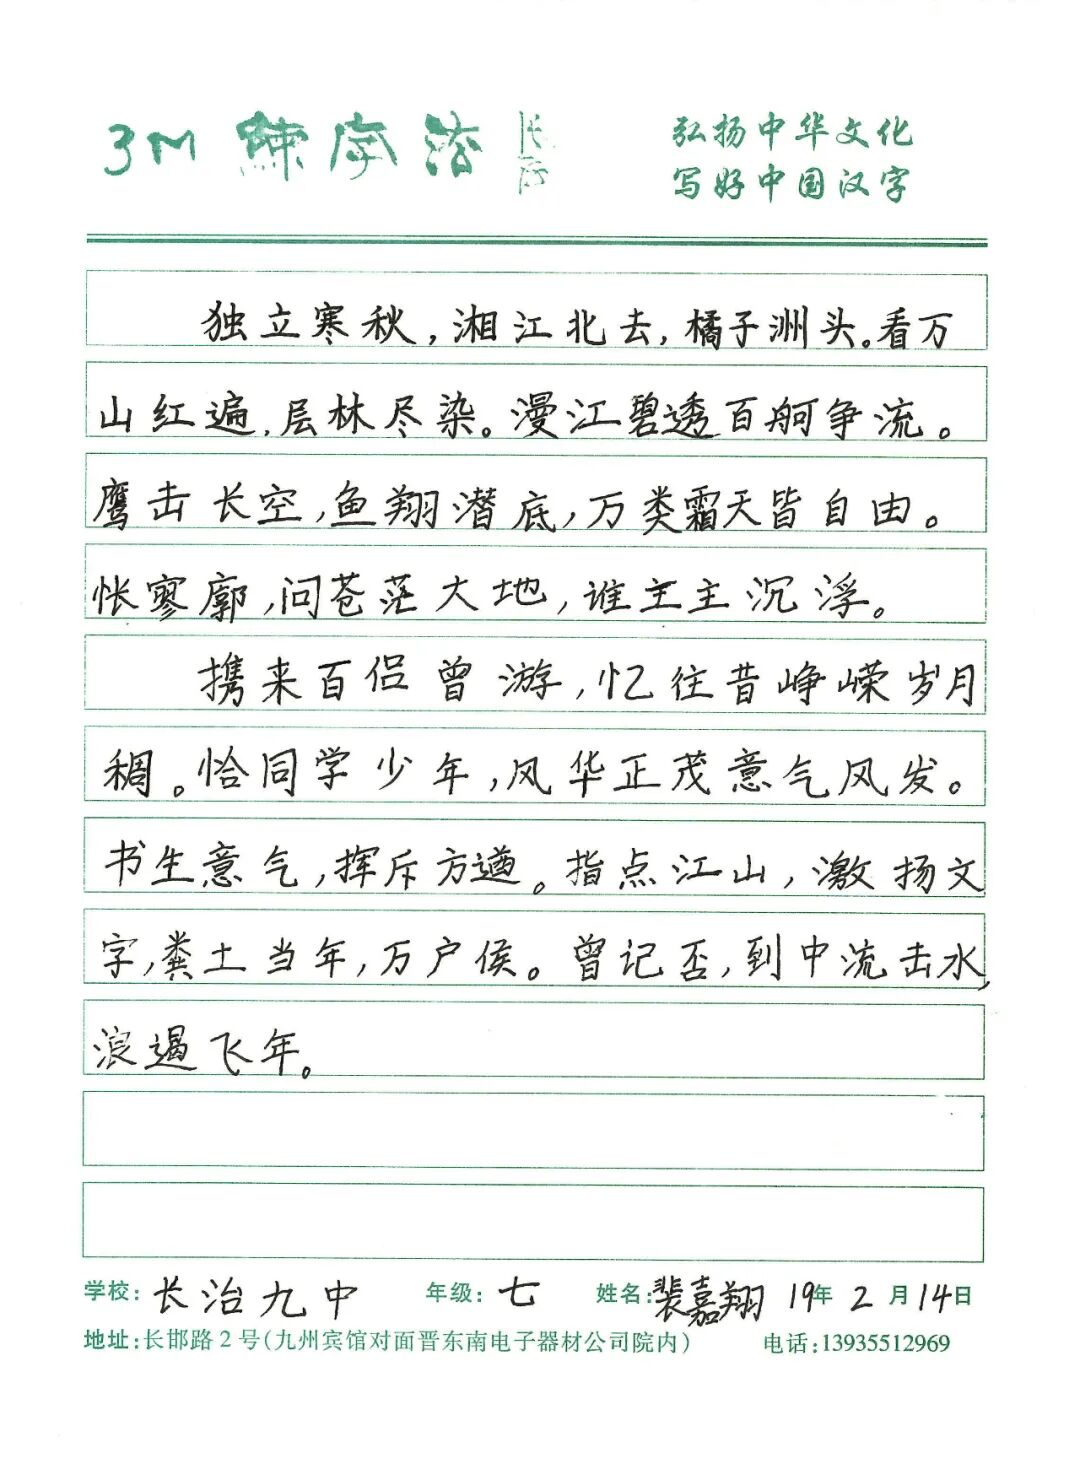 3M 練字法 长治
弘扬中华文化
写好中国汉字
独立寒秋,湘江北去,橘子洲头。看万
山红遍,层林尽染。漫江碧透百舸争流。
鹰击长空,鱼翔潜底,万类霜天皆自由。
怅寥廓,问苍茫大地,谁主主沉浮。
携来百侣曾游,忆往昔峥嵘岁月
稠。恰同学少年,风华正茂意气风发。
书生意气,挥斥方遒。指点江山,激扬文
字,粪土当年,万户侯。曾记否,到中流击水,
浪遏飞年。
学校:长治九中 年级:七 姓名:裴嘉翔 19年2月14日
地址:长邯路2号(九州宾馆对面晋东南电子器材公司院内) 电话:13935512969